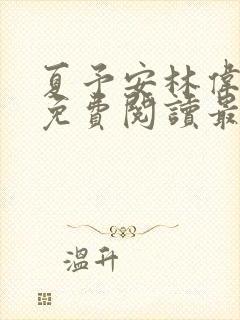 夏予安林偉
免費閱讀最
溫升